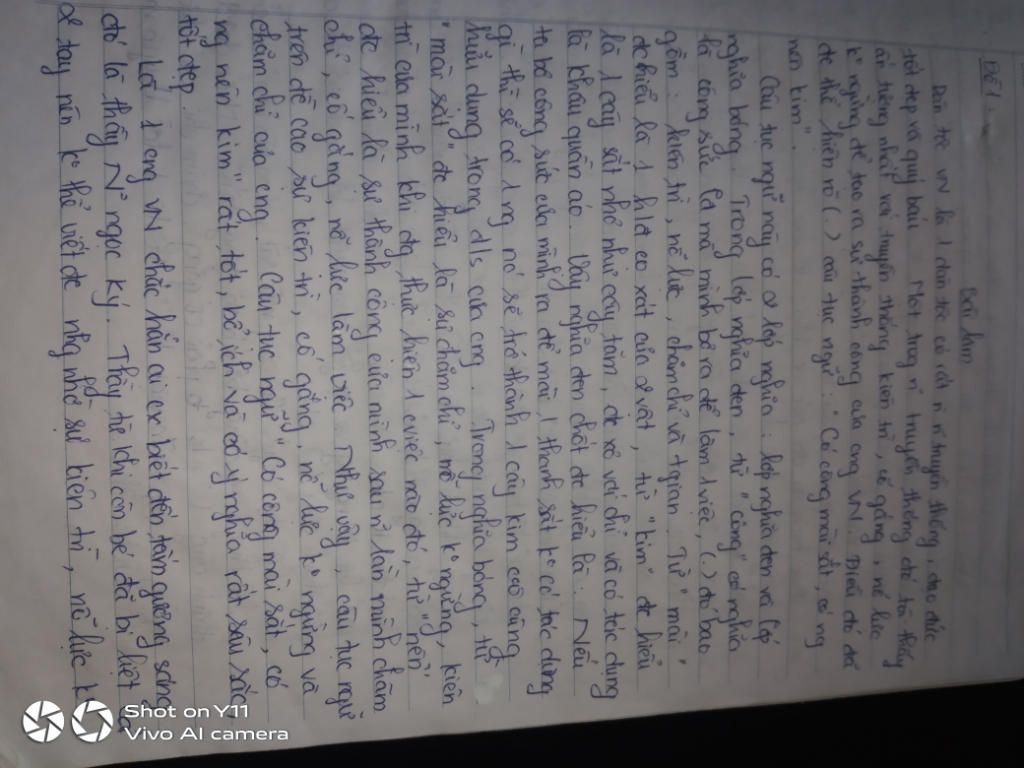 Bài làm
Đề 1:
Dân tộc VN là 1 dân tộc có rất n` truyền thống, đạo đức
tốt đẹp và quý báu. Một trog n~ truyền thống đó tôi thấy
ấn tượng nhất với truyền thống kiên trì, cố gắng, nỗ lực
ko ngừng để tạo ra sự thành công của cng VN. Điều đó đã
đc thể hiện rõ (.) câu tục ngữ: "Có công mài sắt, có ng
nên kim".
Câu tục ngữ này có 2 lớp nghĩa: lớp nghĩa đen và lớp
nghĩa bóng. Trong lớp nghĩa đen, từ "công" có nghĩa
là công sức cta mà mình bỏ ra để làm 1 việc, (.) đó bao
gồm: kiên trì, nỗ lực, chăm chỉ và tgian. Từ "mài"
đc hiểu là 1 hđ cọ xát của 2 vật, từ "kim" đc hiểu
là 1 cây sắt nhỏ như cây tăm, đc xỏ với chỉ và có tác dụng
là khâu quần áo. Vậy nghĩa đen chốt đc hiểu là: Nếu
ta bỏ công sức của mình ra để mài 1 thanh sắt ko có tác dụng
gì thì sẽ có 1 ng nó sẽ trở thành 1 cây kim vô cùng
hữu dụng trong đ/s của cng. Trong nghĩa bóng, từ
"mài sắt" đc hiểu là sự chăm chỉ, nỗ lực ko ngừng, kiên
trì của mình khi đg thực hiện 1 cviệc nào đó, từ "nên"
đc hiểu là sự thành công của mình sau n` lần mình chăm
chỉ, cố gắng, nỗ lực làm việc. Như vậy, câu tục ngữ
trên đề cao sự kiên trì, cố gắng, nỗ lực ko ngừng và
chăm chỉ của cng. Câu tục ngữ "Có công mài sắt, có
ng nên kim" rất tốt, bổ ích và có ý nghĩa rất sâu sắc,
tốt đẹp.
Là 1 cng VN chắc hẳn ai cx biết đến tấm gương sáng
đó là thầy N~ Ngọc Ký. Thầy từ khi còn bé đã bị liệt cả
2 tay nên ko thể viết đc nhg nhờ sự kiên trì, nỗ lực k
Shot on Y11
Vivo AI camera